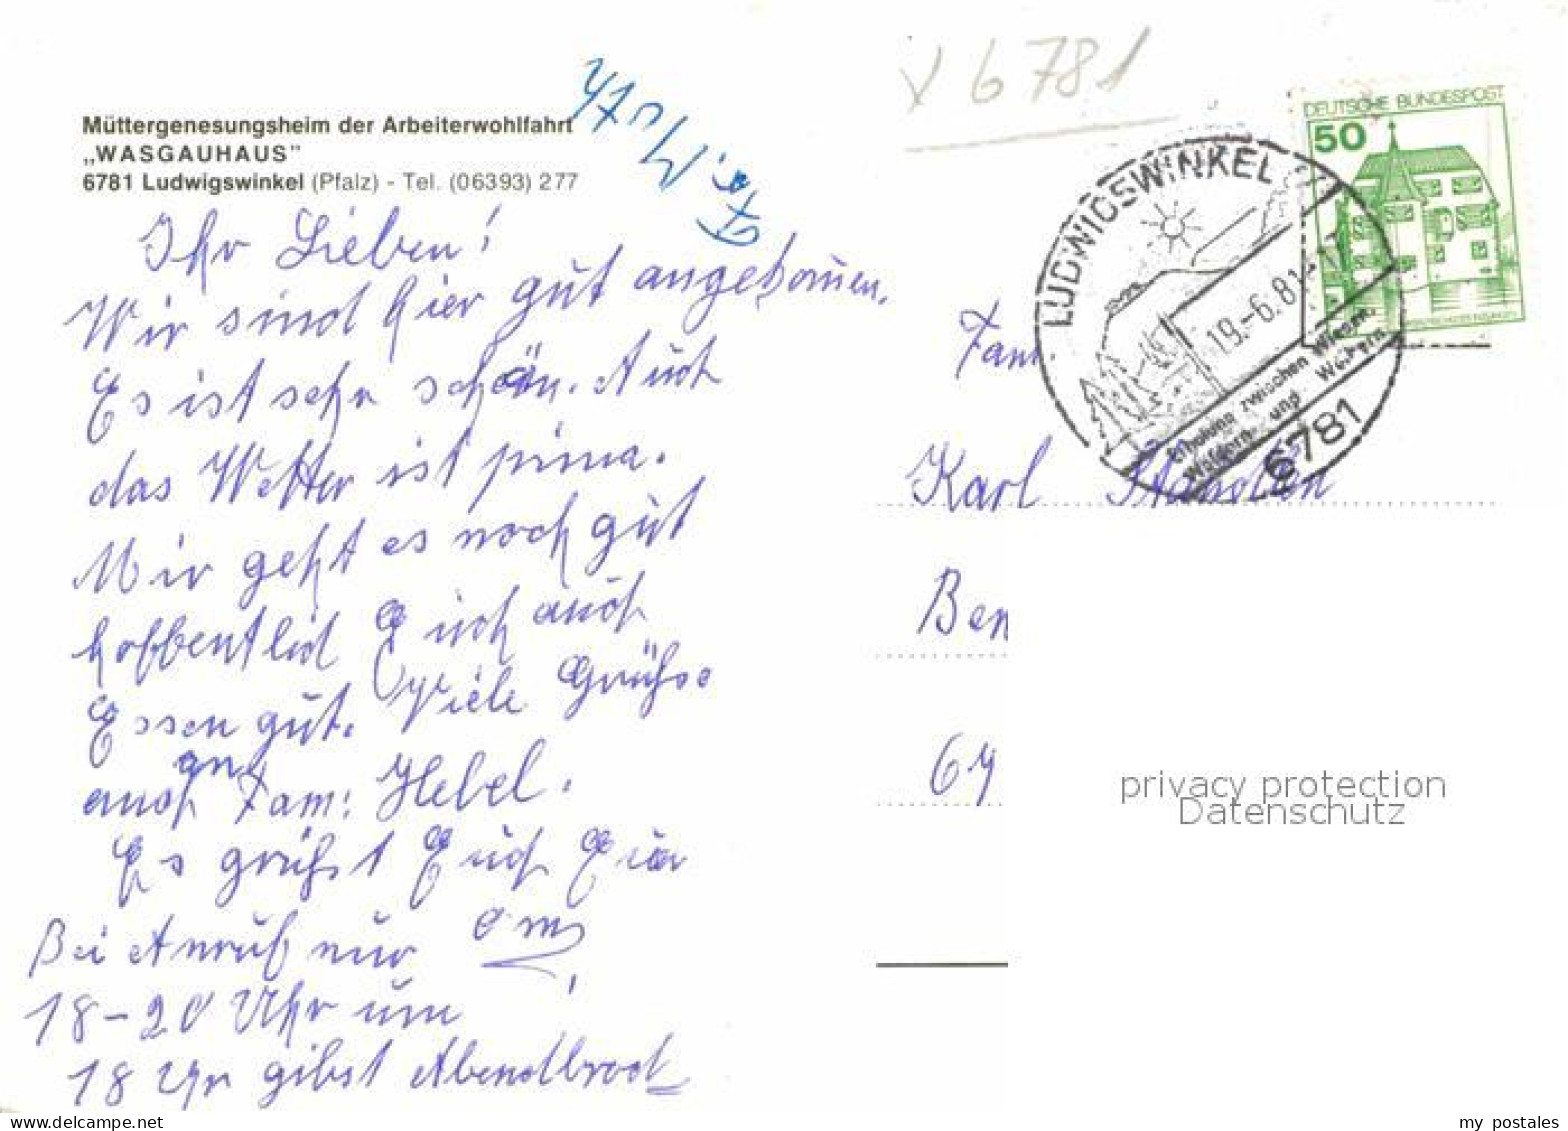 Müttergenesungsheim der Arbeiterwohlfahrt
„WASGAUHAUS”
6781 Ludwigswinkel (Pfalz) - Tel. (06393) 277
Ihr Lieben!
Wir sind hier gut angekommen.
Es ist sehr schön. Auch
das Wetter ist prima.
Mir geht es noch gut
hoffentlich Euch auch
Essen gut. Viele Grühse
an
auch Fam: Hebel.
Es grühst Euch Euer
Oma
Bei Anruf nur
18-20 Uhr um
18 Uhr gibst Abendbrod
6781
DEUTSCHE BUNDESPOST
50
LUDWIGSWINKEL
19.-6.81-17
Erholung zwischen Wiesen,
Wäldern und Weihern
6781
Fam
Karl
Ben
69
privacy protection
Datenschutz
my postales